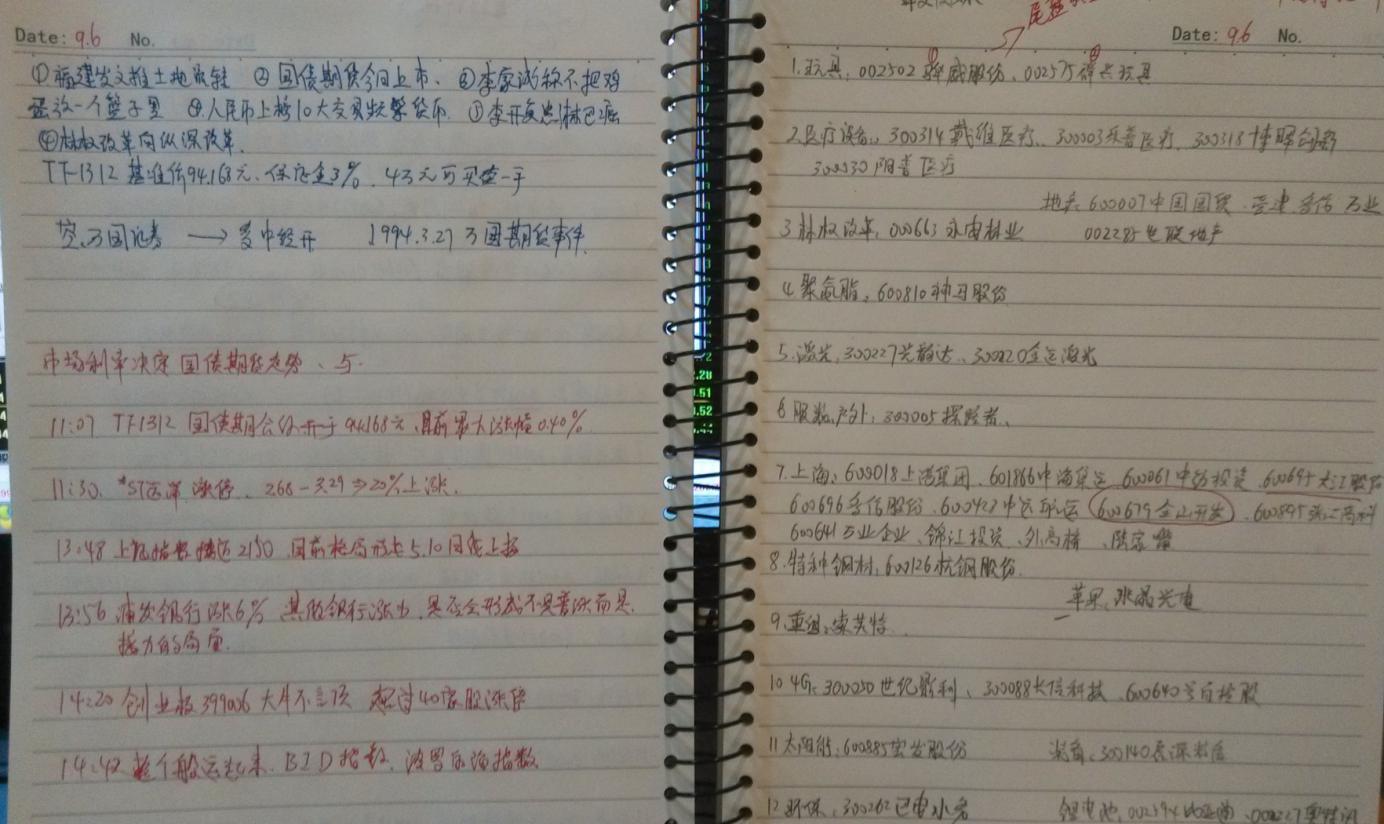 Date: 9.6 No.
①福建发文推土地流转 ②国债期货今日上市、③李嘉诚称不把鸡
蛋放一个篮子里 ④人民币上榜10大交易频繁货币. ⑤李开复患淋巴癌
⑥林权改革向纵深改革.
TF1312 基准价94.168元、保证金3%、4万元可买卖一手
万国证券 → 多中经开 1994.3.27 万国期货事件.
市场利率决定国债期货走势、与
11:07 TF1312 国债期合约开于94.168元,目前最大涨幅0.40%
11:30. *ST远洋 涨停、2.68-3.29 ⇒20%上涨.
13:48 上证指数 2150 目前格局 5.10日线上扬
13:56 浦发银行涨6% 其他银行涨 , 是否会形成不是普涨而是.
接力的局面.
14:20 创业板399006 大牛不言顶 超过40家股涨停
14:42 整个船运起来、BID指数、波罗的海指数
尾盘
Date: 9.6 No.
1.玩具:002502 骅威股份、002575 群兴玩具
2.医疗设备:300314戴维医疗、300003乐普医疗、300318博晖创新
300030阳普医疗
地产:600007中国国贸 万业
3.林权改革:000663永安林业 002285世联地产
4.聚氨脂:600810神马股份
5.激光:300227光韵达、300220金运激光
6.服装户外:300005探路者、
7.上海:600018上港集团、601866中海集运、600061中纺投资、600695大江股份
600696多伦股份、600427中远航运 600679金山开发、600895张江高科
600641万业企业、锦江投资、外高桥、陆家嘴
8.特种钢材:600126杭钢股份.
苹果:水晶光电
9.重组:索芙特.
10.4G:300050世纪鼎利、300088长信科技、600640号百控股
11.太阳能:600885宏发股份 300140启源装备
12.环保:300262巴安水务 锂电池:002594比亚迪、002227奥特迅